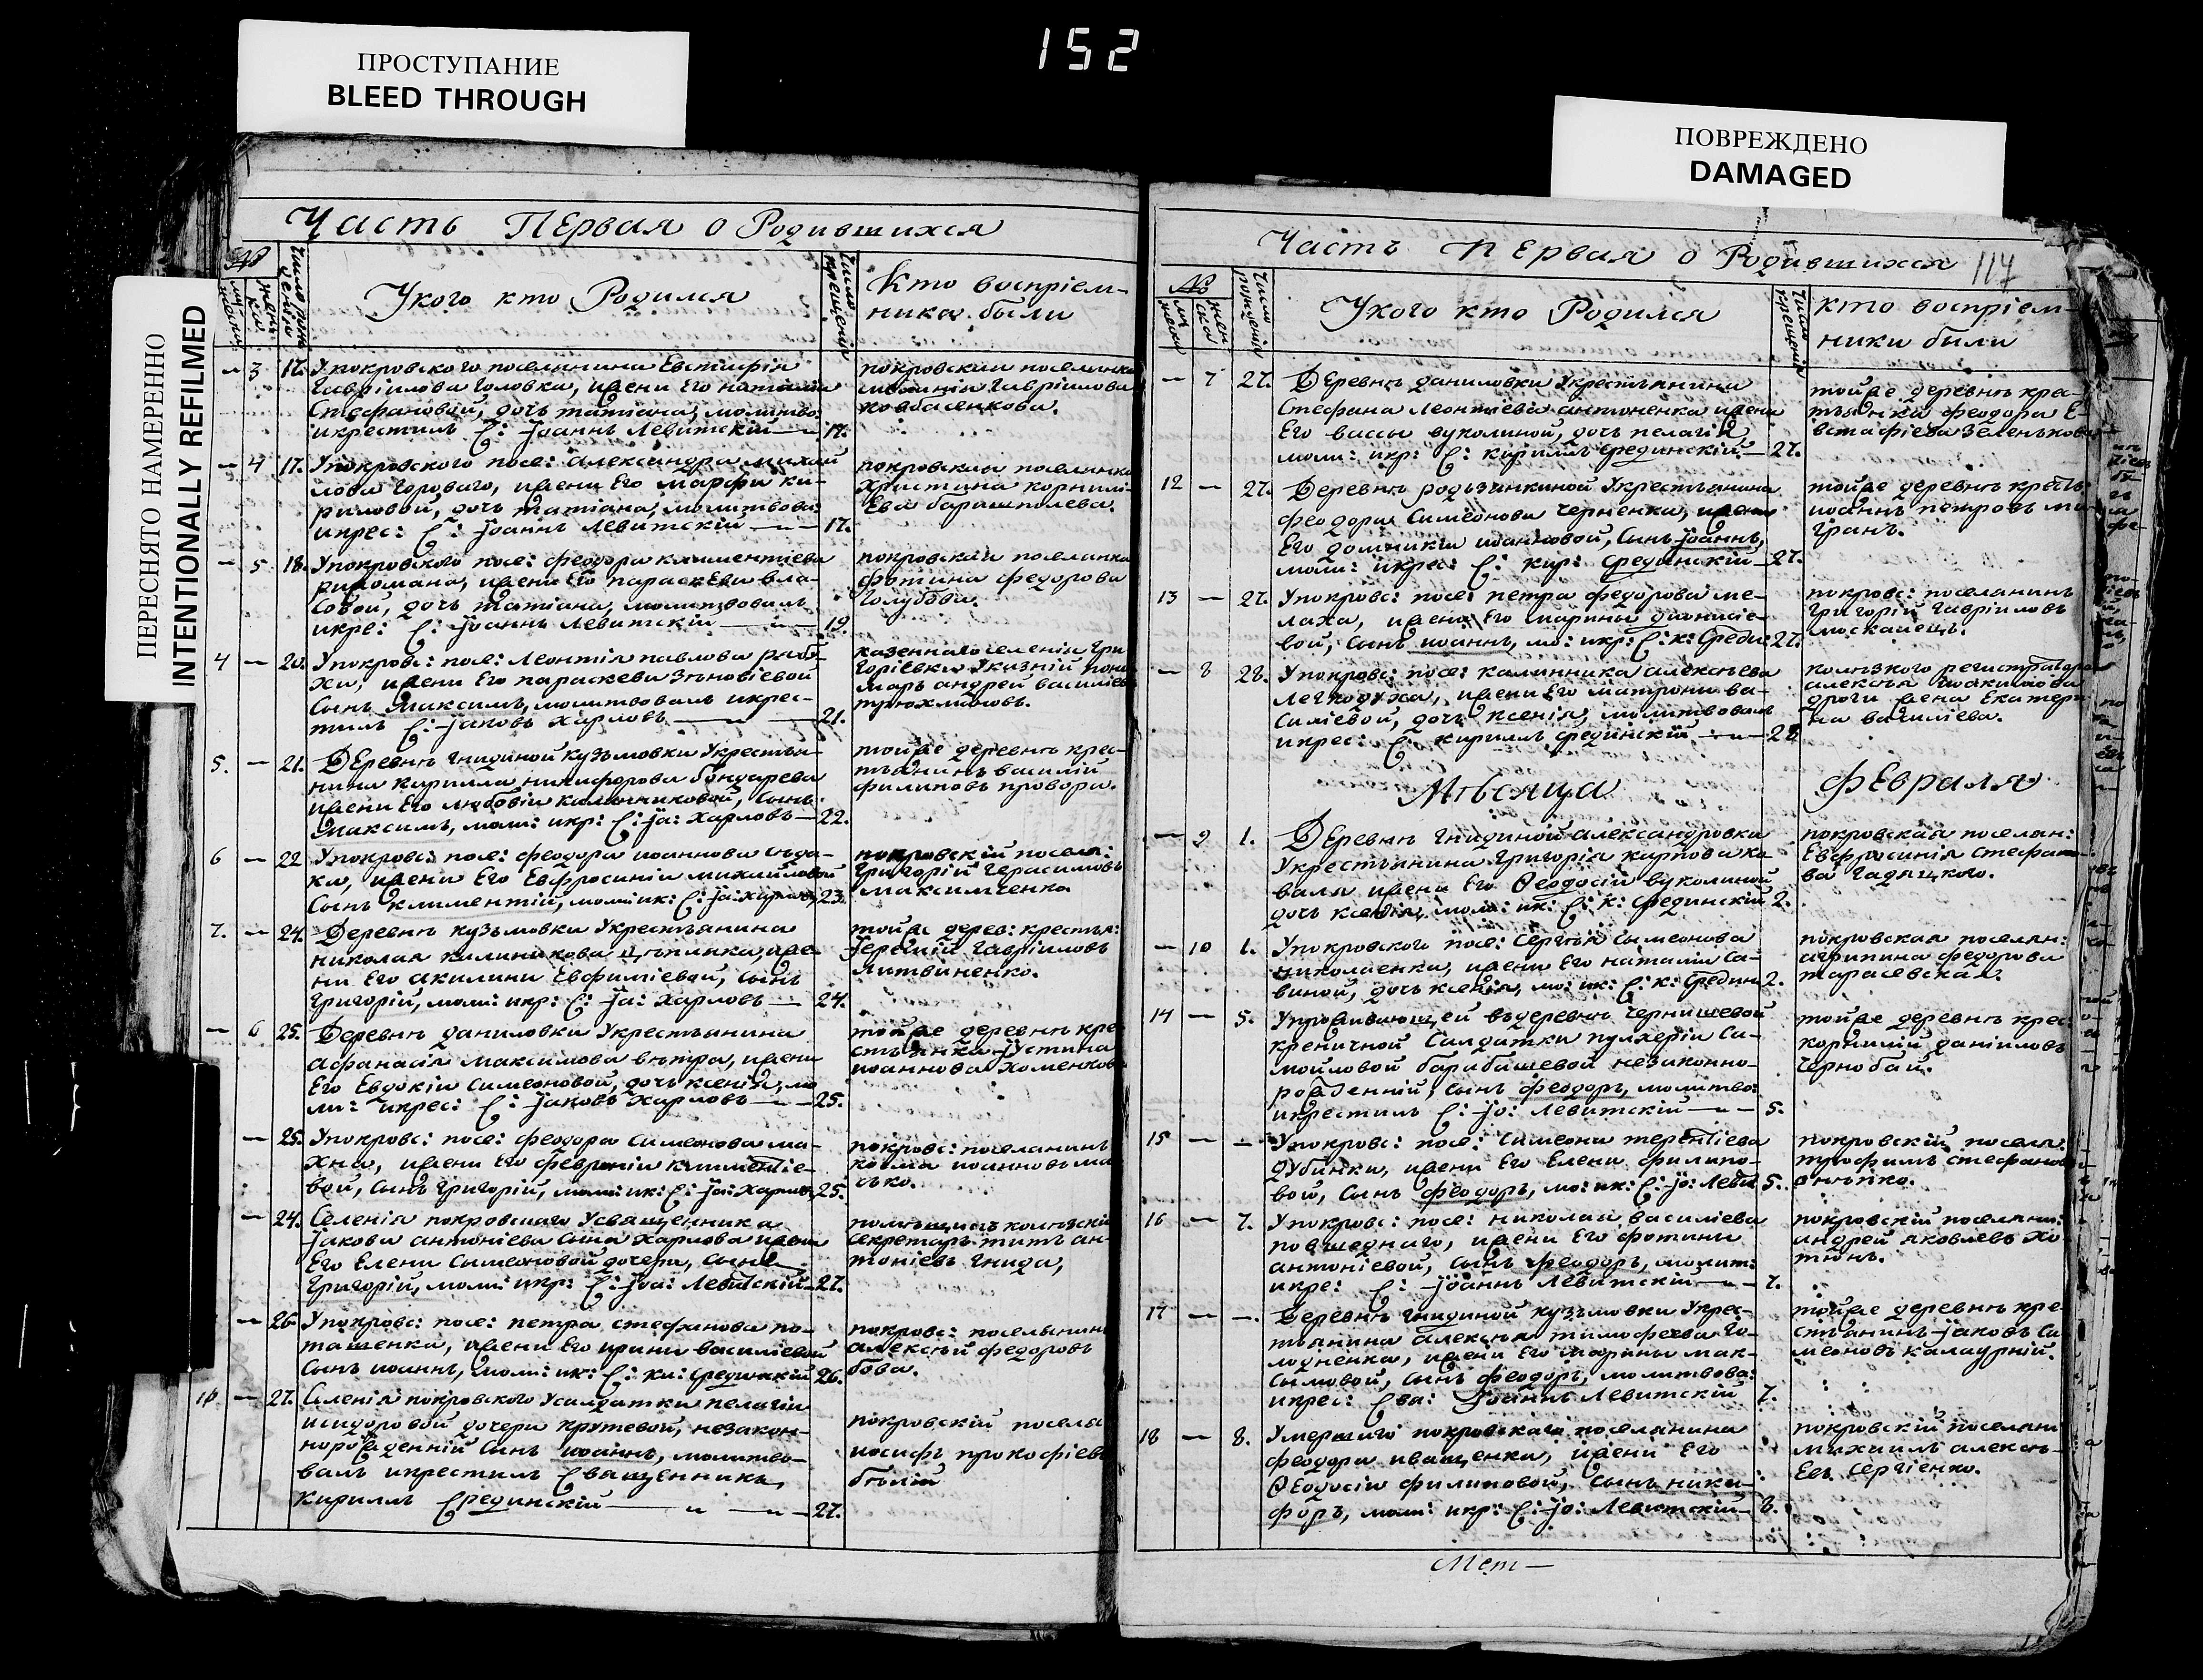 152
ПРОСТУПАНИЕ
BLEED THROUGH
ПОВРЕЖДЕНО
DAMAGED
ПЕРЕСНЯТО НАМЕРЕННО
INTENTIONALLY REFILMED
Часть ПЕрвая о Родившихся
№
Укого кто Родился
Число крещенія
Кто воспріем-
ника были
3 17. Упокровского поселянина Евстафія
Гавріилова Головка, иЖени Его наталіи
Стефановой, дочь татіана, молитво:
икрестилъ С: Іоаннъ Левитскій 17.
покровская поселянка
Гавріилова
ковбасенкова.
4 17. Упокровского посе: александра михай
лова Горового, иЖени Его марфи ки-
риловой, дочь татіана, молитвова:
икрес: С: Іоаннъ Левитскій 17.
покровская поселянка
христина корнилі-
Ева баришполева.
5 18. Упокровского посе: феодора климентіева
иЖени Его параскЕви вла-
совой, дочь татіана, молитвовалъ
икре: С: Іоаннъ Левитскій 19.
покровская поселянка
фотина федорова
Голубова.
4 — 20. Упокровс: посе: Леонтія павлова
хи, иЖени Его параскеви зѣновіевой
Сынъ Максимъ, молитвовалъ икрес-
тилъ С: Іаковъ Харловъ 21.
казеннаго селенія Гри
горіевки Указній поно
марь андрей василіев
5. — 21. ДЕревнѣ Гнидиной кузьмовки Укрестья-
нина кирилла никифорова бондарева
иЖени Его любовіи калинниковой, сынъ
Максимъ, моли: икр: С: Іа: Харловъ 22.
тойЖе деревнѣ крес-
тьянинъ василій
филиповъ провора.
6 — 22 Упокровс: посе: феодора иоаннова сѣда-
ка, иЖени Его Евфросиніи михайловой
Сынъ климентій, моли: ик: С: Іа: Харловъ 23.
покровскій поселя:
Григорій Герасимовъ
Максименко.
7. — 24. Деревнѣ кузьмовки Укрестьянина
николая калиникова иЖе-
ни Его акилини Евфиміевой, сынъ
Григорій, моли: икр: С: Іа: Харловъ 24.
тойЖе дерев: крестья:
Іеремій Гавріиловъ
Литвиненко.
— 6 25. Деревнѣ даниловки Укрестьянина
афанасія максимова вѣтра, иЖени
Его Евдокіи симеоновой, дочь ксенія, мо
ли: икрес: С: Іаковъ Харловъ 25.
тойЖе деревнѣ кре
стьянка Іустина
иоаннова хоменкова
— 25. Упокровс: посе: феодора симеонова ма-
хна, иЖени Его февроніи климентіе-
вой, сынъ Григорій, моли: ик: С: Іа: Харловъ 25.
покровс: поселянинъ
козма иоанновъ ма
сько.
— 24. Селенія покровского Усвященника
Іакова антоніева сына Харлова иЖени
Его Елени Симеоновой дочери, сынъ
Григорій, моли: икр: С: Іоа: Левитскій 27.
помѣщикъ колѣзскій
секретарь титъ ан-
тоніевъ Гнида,
— 26 Упокровс: посе: петра стефанова по-
ташенка, иЖени Его ирини василіевой
Сынъ иоаннъ, моли: ик: С: ки: Срединскій 26.
покровс: поселянинъ
алексѣй федоровъ
бова.
— 27. Селенія покровского Усалдатки пелагіи
исидоровой дочери крутевой, незакон-
норожденній сынъ иоаннъ, молитво-
валъ икрестилъ Священникъ
Кирилъ Срединскій 27.
покровскій посела
иосифъ прокофіевъ
бѣлій
Часть пЕрвая о Родившихся
114
№
Число рожденія
Укого кто Родился
Число крещенія
Кто воспріем-
ники были
— 7 27. ДЕревнѣ даниловки Укрестьянина
Стефана Леонтіева антоненка иЖени
Его вассы вуколиной, дочь пелагія
моли: икр: С: кириллъ Срединскій 27.
тойЖе деревнѣ крес-
тьянка феодора Е-
встафіева Зеленькова
12 — 27. Деревнѣ родьзинкиной Укрестьянина
феодора Симеонова Черненка, иЖени
Его домникіи иоанновой, Сынъ Іоаннъ,
моли: икрес: С: кир: Срединскій 27.
тойЖе деревнѣ кресть
иоаннъ петровъ ми
гранъ.
13 — 27. Упокровс: посе: петра федорова ме-
лаха, иЖени Его марины дионисіе-
вой, Сынъ иоаннъ, мо: икр: С: к: Среди: 27.
покровс: поселянинъ
Григорій Гавріиловъ
москалецъ.
— 8 28. Упокровс: посе: калинника алексѣева
Легкодуха, иЖени Его матрони ва-
силіевой, дочь ксенія, молитвовалъ
икрес: С: кириллъ Срединскій 28
колѣзкого регистратора
алексѣя
Жена Екатери
на василіева.
Мѣсяца
ФЕвраля
— 9 1. ДЕревнѣ Гнидиной александровки
Укрестьянина Григорія карпова ко
валя иЖени Его Ѳеодосіи вуколиной
дочь ксенія, моли: ик: С: к: Срединскій 2.
покровская поселян:
Евфросинія Стефано
ва Гадяцкого.
— 10 1. Упокровского посе: Сергѣя Симеонова
николаенка, иЖени Его наталіи Са-
виной, дочь ксенія, мо: ик: С: к: Средин 2.
покровская поселян:
агрипина федорова
тарасевская.
14 — 5. Упроживающей въдеревнѣ Чернишевой
креничной Салдатки пулхеріи Са-
мойловой барабашевой незаконно-
рожденній, сынъ феодоръ, молитво:
икрестилъ С: Іо: Левитскій 5.
тойЖе деревнѣ крес:
корнилій даніиловъ
Чернобай.
15 — —. Упокровс: посе: Симеона терентіева
дубинки, иЖени Его Елени филипо-
вой, Сынъ феодоръ, мо: ик: С: Іо: Леви 5.
покровскій поселя:
трофимъ стефанов
онѣпко.
16 — 7. Упокровс: посе: николая василіева
повшеднаго, иЖени Его фотини
антоніевой, сынъ феодоръ, молит:
икре: С: Іоаннъ Левитскій 7.
покровскій поселяни:
андрей яковлевъ хо
тюнъ.
17 — —. Деревнѣ Гнидиной кузьмовки Укрес-
тьянина алексѣя тимофеева Го-
лодненка, иЖени Его марины мак-
симовой, сынъ феодоръ, молитвова:
икрес: Сва: Іоаннъ Левитскій 7.
тойЖе деревнѣ кре
стьянинъ Іаковъ Си
меоновъ калаурній.
18 — 8. Умершаго покровскаго поселянина
феодора иващенка, иЖени Его
Ѳеодосіи филиповой, сынъ ники-
форъ, моли: икр: С: Іо: Левитскій 8.
покровскій поселяни
михаилъ алексѣ-
Евъ Сергіенко.
Мет—